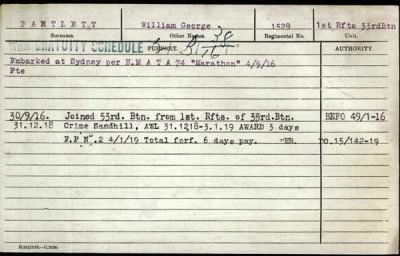 BARTLETT William George 1529 1st Rfts 33rdBtn
Surname. Other Names. Regimental No.
WAR GRATUITY SCHEDULE REPORT. AUTHORITY.
Embarked at Sydney per H.M A T A 74 "Marathon" 4/5/16
Pte
30/9/16. Joined 53rd. Btn. from 1st. Rfts. of 33rd.Btn. BEFO 49/1-16
31.12.18 Crime Sandhill, AWL 31.12.18-3.1.19 AWARD 3 days
F.P No.2 4/1/19 Total forf. 6 days pay. PO.15/142-19